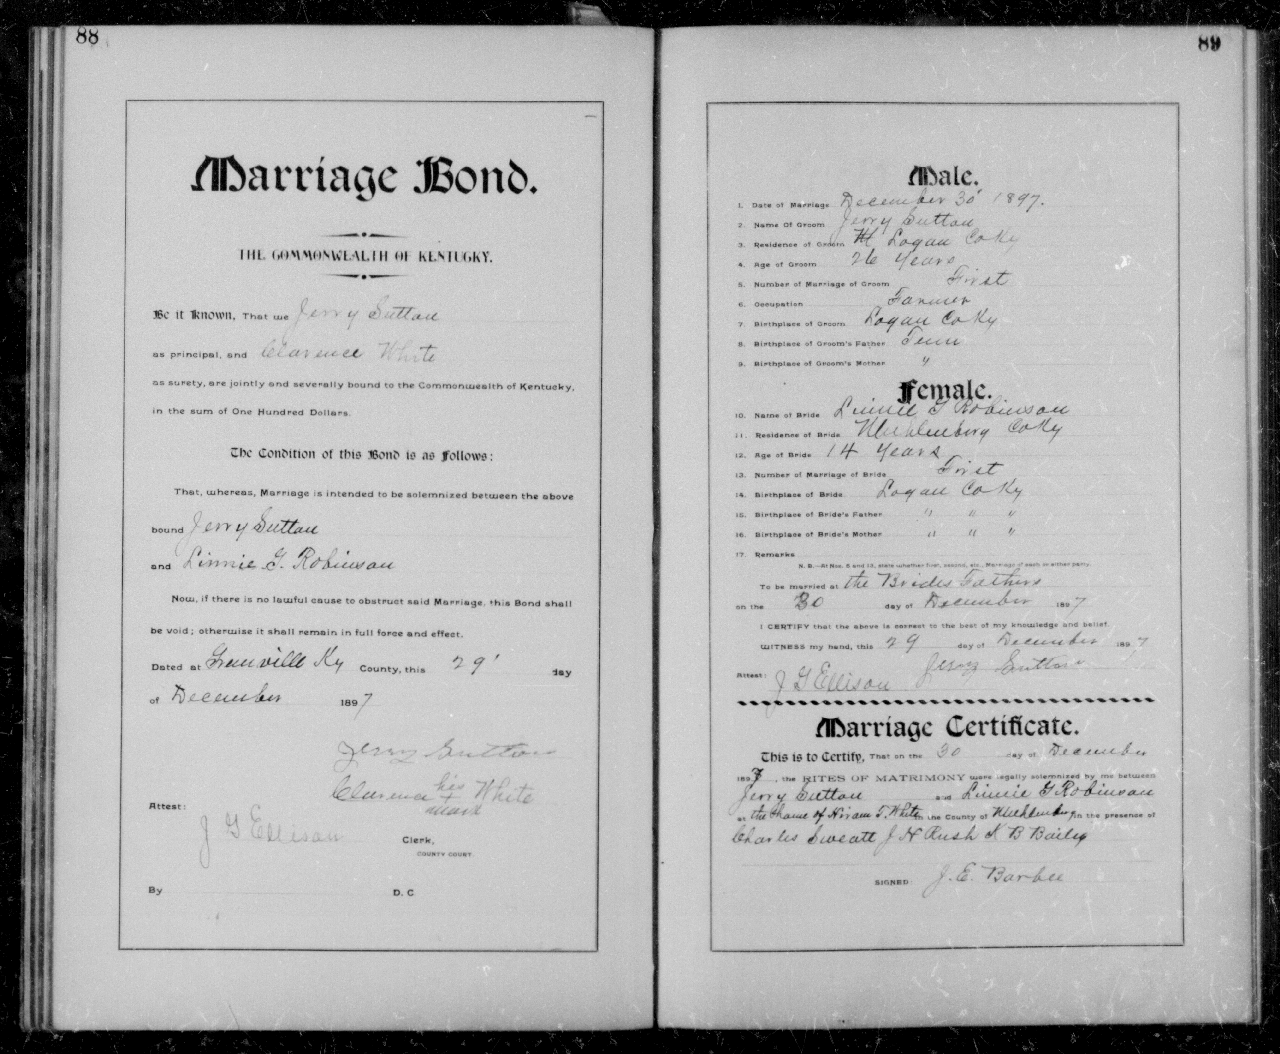 88
Marriage Bond.
THE COMMONWEALTH OF KENTUCKY.
Be it Known, That we Jerry Sutton
as principal, and Clarence White
as surety, are jointly and severally bound to the Commonwealth of Kentucky,
in the sum of One Hundred Dollars.
The Condition of this Bond is as Follows:
That, whereas, Marriage is intended to be solemnized between the above
bound Jerry Sutton
and Linnie G. Robinson
Now, if there is no lawful cause to obstruct said Marriage, this Bond shall
be void; otherwise it shall remain in full force and effect.
Dated at Greenville Ky County, this 29' day
of December 1897
Jerry Sutton
Clarence his White
mark
Attest:
J G Ellison Clerk,
COUNTY COURT.
By D. C
89
Male.
1. Date of Marriage December 30' 1897.
2. Name Of Groom Jerry Sutton
3. Residence of Groom Logan Co Ky
4. Age of Groom 26 Years
5. Number of Marriage of Groom First
6. Occupation Farmer
7. Birthplace of Groom Logan Co Ky
8. Birthplace of Groom's Father Tenn
9. Birthplace of Groom's Mother "
Female.
10. Name of Bride Linnie G Robinson
11. Residence of Bride Muhlenberg Co Ky
12. Age of Bride 14 Years
13. Number of Marriage of Bride First
14. Birthplace of Bride Logan Co Ky
15. Birthplace of Bride's Father " " "
16. Birthplace of Bride's Mother " " "
17. Remarks
N. B.—At Nos. 5 and 13, state whether first, second, etc., Marriage of each or either party.
To be married at the Brides Fathers
on the 30 day of December 1897
I CERTIFY that the above is correct to the best of my knowledge and belief.
WITNESS my hand, this 29 day of December 1897
Jerry Sutton
Attest: J G Ellison
Marriage Certificate.
This is to Certify, That on the 30 day of December
1897, the RITES OF MATRIMONY were legally solemnized by me between
Jerry Sutton and Linnie G Robinson
at the Home of Hiram T. White in the County of Muhlenburg, in the presence of
Charles Sweatt J H Rush K B Bailey
SIGNED J. E. Barbee